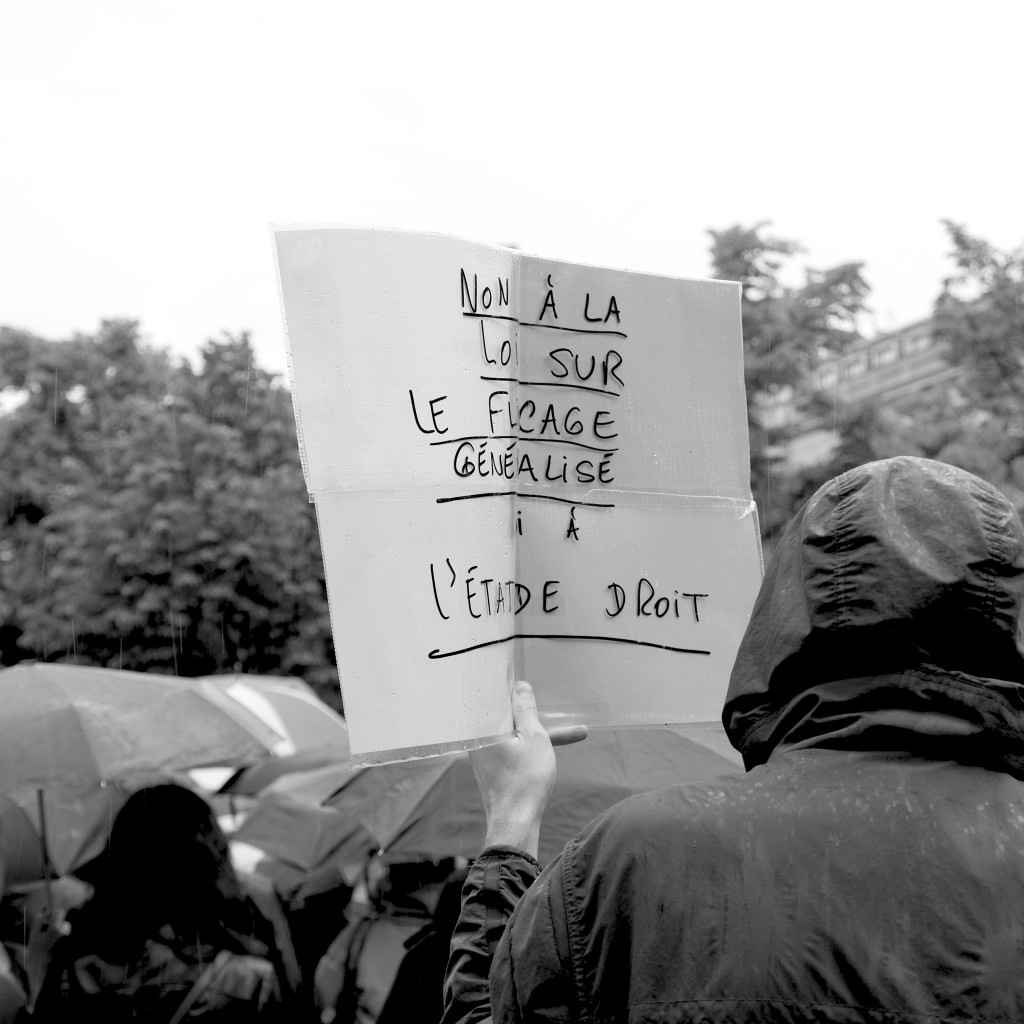 NON À LA
LOi SUR
LE FiCAGE
GÉNÉALiSÉ
i À
L'ÉTAT DE DRoiT